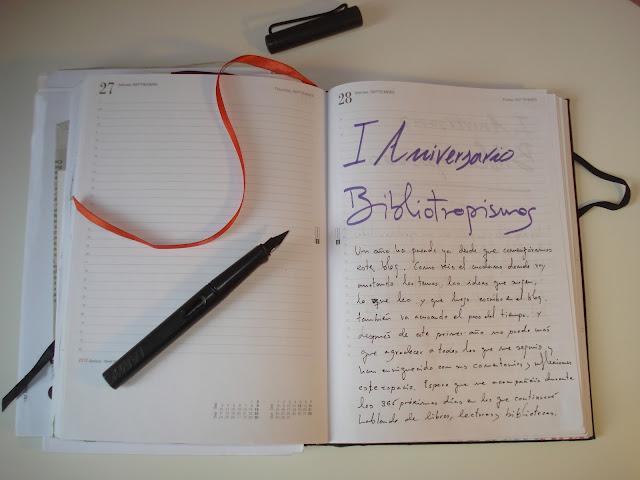 27
SEPTIEMBRE
28
SEPTIEMBRE
I Aniversario
Bibliotropismos
Un año ha pasado ya desde que comenzáramos
este blog. Como veis el cuaderno donde voy
anotando los temas, las ideas que surgen,
lo que leo y que luego escribo en el blog,
también va acusando el paso del tiempo. Y
después de este primer año no puedo más
que agradecer a todos los que me seguís y
han enriquecido con sus comentarios y reflexiones
este espacio. Espero que me acompañéis durante
los 365 próximos días en los que continuaré
hablando de libros, lecturas y bibliotecas.